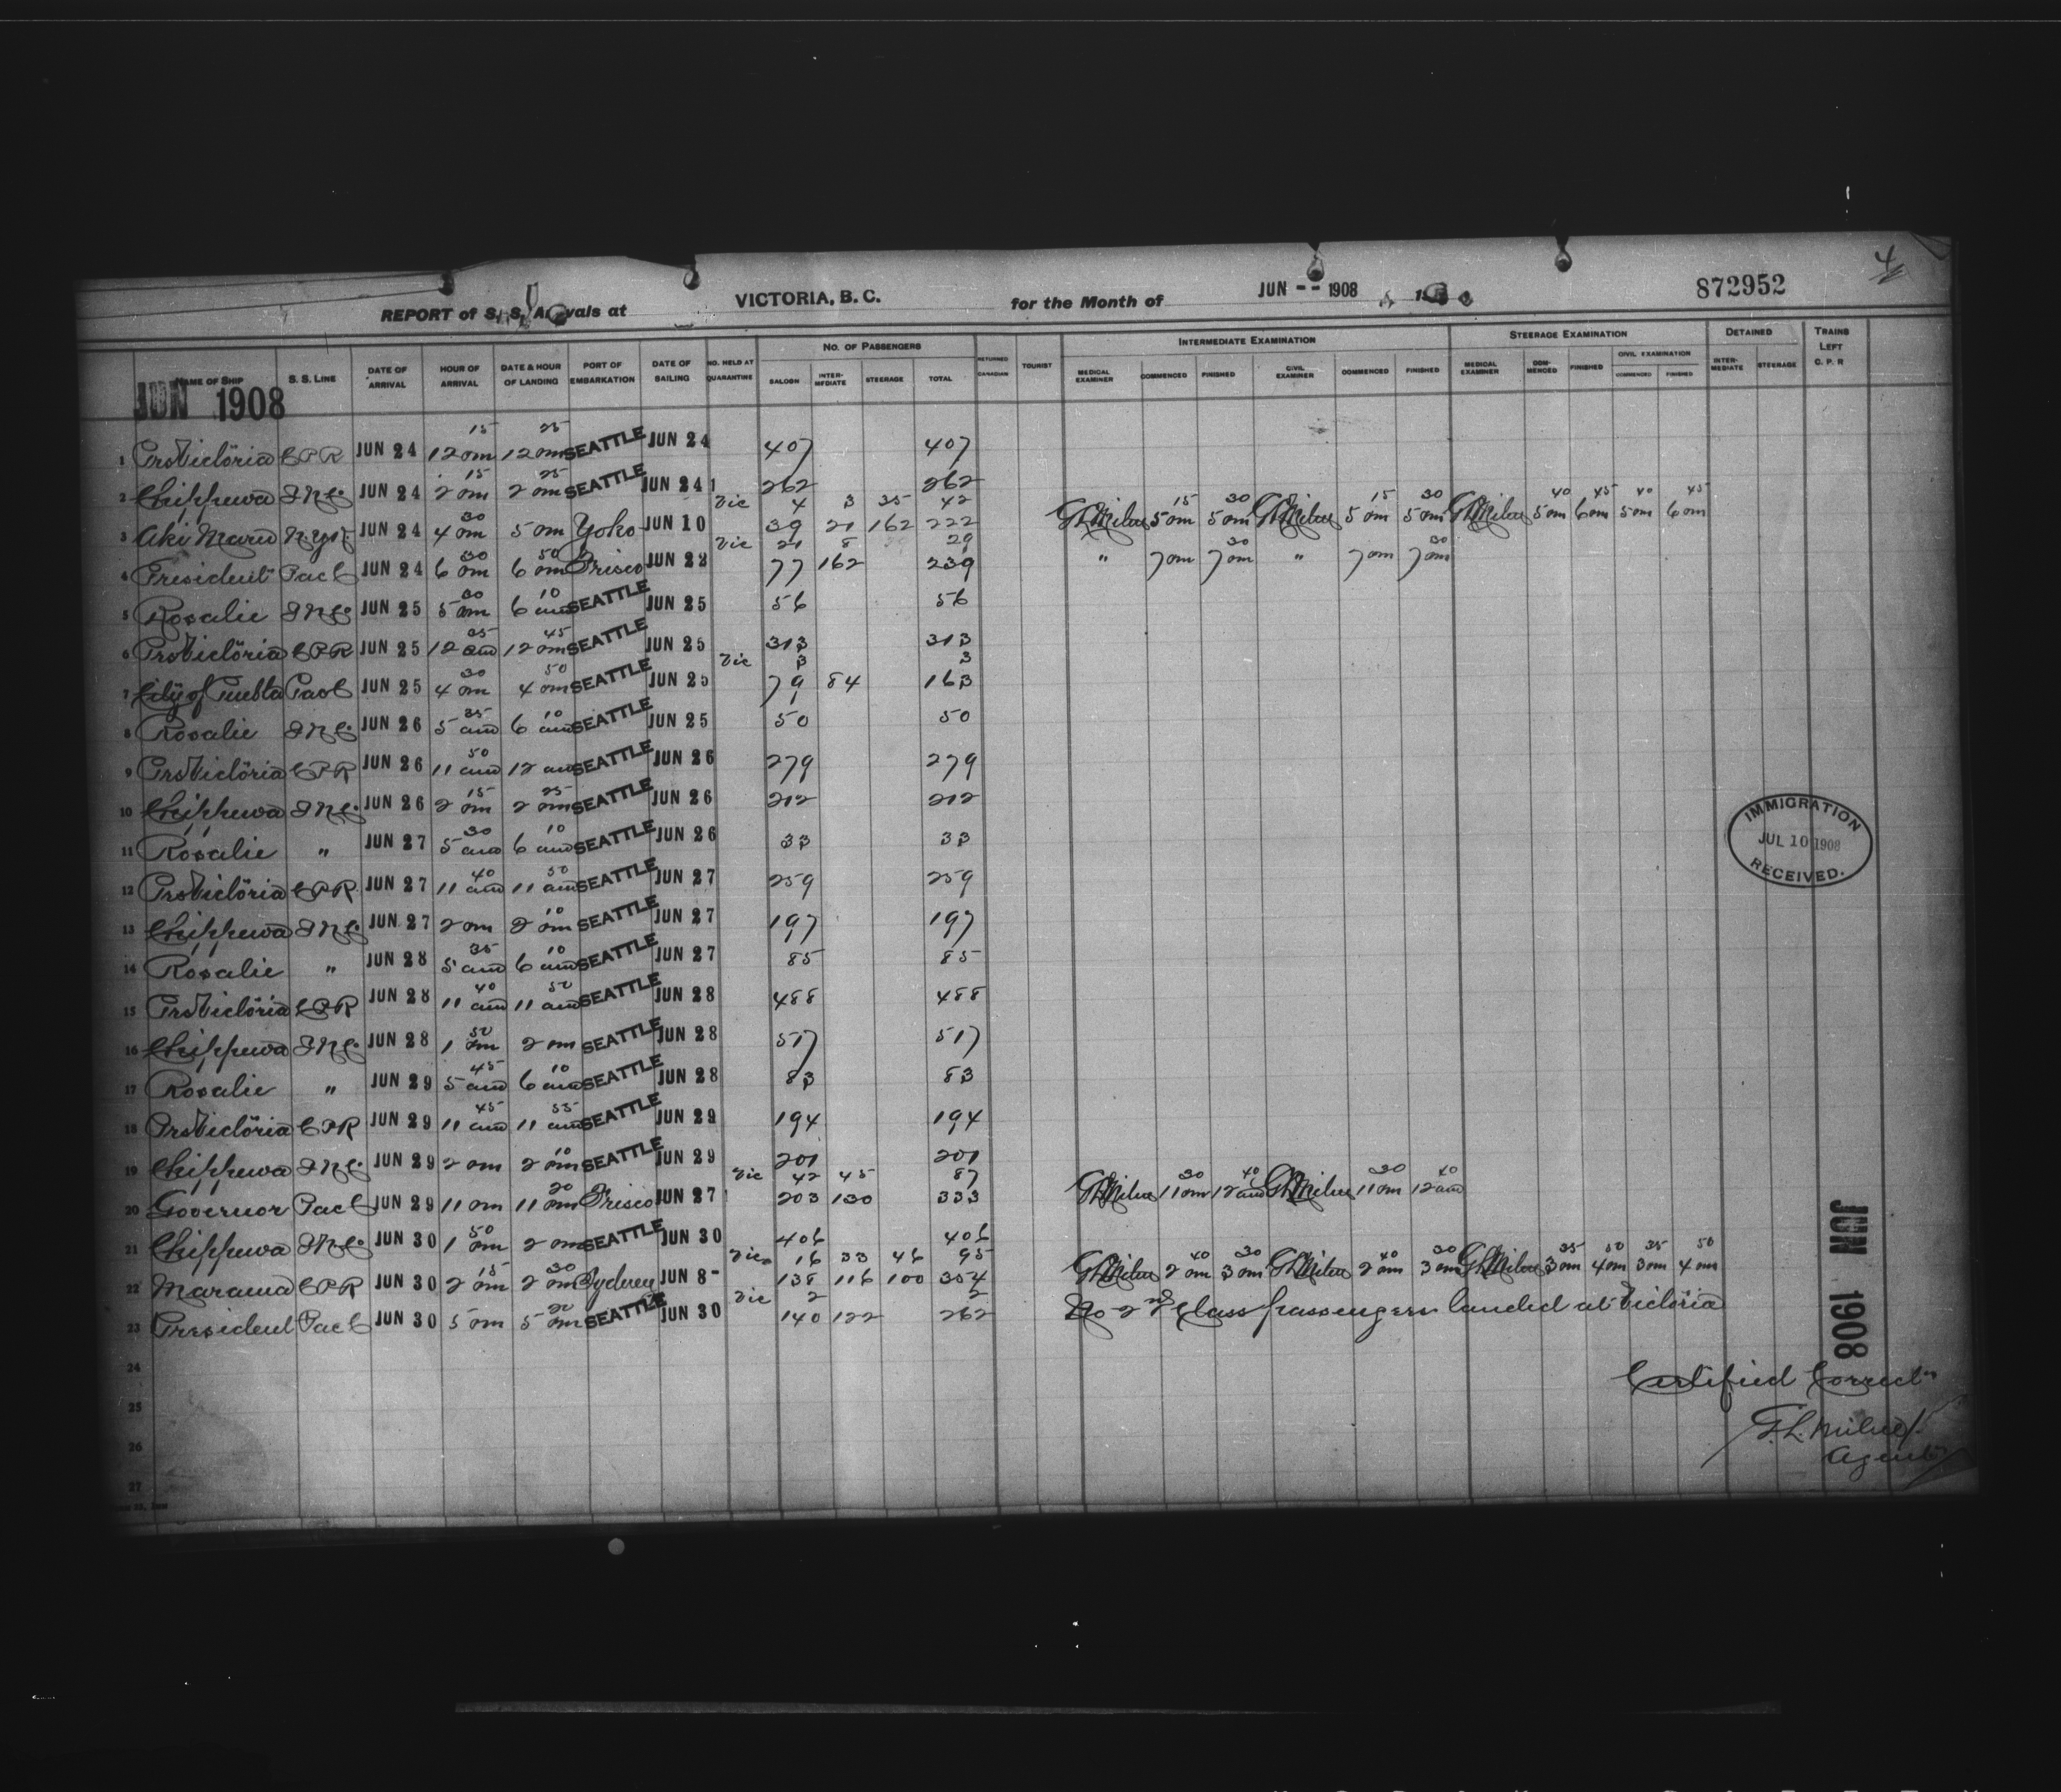 4
872952
REPORT of S. S. Arrivals at VICTORIA, B. C. for the Month of JUN -- 1908
NO. OF PASSENGERS INTERMEDIATE EXAMINATION STEERAGE EXAMINATION DETAINED TRAINS LEFT C. P. R
NAME OF SHIP S. S. LINE DATE OF ARRIVAL HOUR OF ARRIVAL DATE & HOUR OF LANDING PORT OF EMBARKATION DATE OF SAILING NO. HELD AT QUARANTINE SALOON INTER-MEDIATE STEERAGE TOTAL RETURNED CANADIAN TOURIST MEDICAL EXAMINER COMMENCED FINISHED CIVIL EXAMINER COMMENCED FINISHED MEDICAL EXAMINER COM-MENCED FINISHED CIVIL EXAMINATION COMMENCED FINISHED INTER-MEDIATE STEERAGE
JUN 1908
1 PrsVictoria CPR JUN 24 12 15 pm 12 25 pm SEATTLE JUN 24 407 407
2 Chippewa INCo JUN 24 2 15 pm 2 25 pm SEATTLE JUN 24 262 262
Vic 4 3 35 42
3 Aki Maru N.Y.K. JUN 24 4 30 pm 5 pm Yoko JUN 10 39 21 162 222 GLMilne 5 15 pm 5 30 pm GLMilne 5 15 pm 5 30 pm GLMilne 5 40 pm 6 45 pm 5 40 pm 6 45 pm
Vic 21 8 29
4 President PacC JUN 24 6 30 pm 6 50 pm Frisco JUN 22 77 162 239 " 7 pm 7 30 pm " 7 pm 7 30 pm
5 Rosalie INCo JUN 25 5 30 am 6 10 am SEATTLE JUN 25 56 56
6 PrsVictoria CPR JUN 25 12 35 am 12 45 pm SEATTLE JUN 25 313 313
Vic 3 3
7 City of Puebla PacC JUN 25 4 30 pm 4 50 pm SEATTLE JUN 25 79 84 163
8 Rosalie INCo JUN 26 5 35 am 6 10 am SEATTLE JUN 25 50 50
9 PrsVictoria CPR JUN 26 11 50 am 12 am SEATTLE JUN 26 279 279
10 Chippewa INCo JUN 26 2 15 pm 2 25 pm SEATTLE JUN 26 212 212
11 Rosalie " JUN 27 5 30 am 6 10 am SEATTLE JUN 26 33 33
12 PrsVictoria CPR JUN 27 11 40 am 11 50 am SEATTLE JUN 27 259 259
13 Chippewa INCo JUN 27 2 pm 2 10 pm SEATTLE JUN 27 197 197
14 Rosalie " JUN 28 5 35 am 6 10 am SEATTLE JUN 27 85 85
15 PrsVictoria CPR JUN 28 11 40 am 11 50 am SEATTLE JUN 28 488 488
16 Chippewa INCo JUN 28 1 50 pm 2 pm SEATTLE JUN 28 517 517
17 Rosalie " JUN 29 5 45 am 6 10 am SEATTLE JUN 28 83 83
18 PrsVictoria CPR JUN 29 11 45 am 11 55 am SEATTLE JUN 29 194 194
19 Chippewa INCo JUN 29 2 pm 2 10 pm SEATTLE JUN 29 201 201
Vic 42 45 87
20 Governor PacC JUN 29 11 pm 11 20 pm Frisco JUN 27 203 130 333 GLMilne 11 30 pm 12 40 am GLMilne 11 30 pm 12 40 am
21 Chippewa INCo JUN 30 1 50 pm 2 pm SEATTLE JUN 30 406 406
Vic 16 33 46 95
22 Marama CPR JUN 30 2 15 pm 2 30 pm Sydney JUN 8- 138 116 100 354 GLMilne 2 40 pm 3 30 pm GLMilne 2 40 pm 3 30 pm GLMilne 3 35 pm 4 50 pm 3 35 pm 4 50 pm
Vic 2 2
23 President PacC JUN 30 5 pm 5 20 pm SEATTLE JUN 30 140 122 262 No 2nd Class passengers landed at Victoria
24
25
26
27
IMMIGRATION
JUL 10 1908
RECEIVED.
JUN 1908
Certified Correct
G.L. Milne
Agent